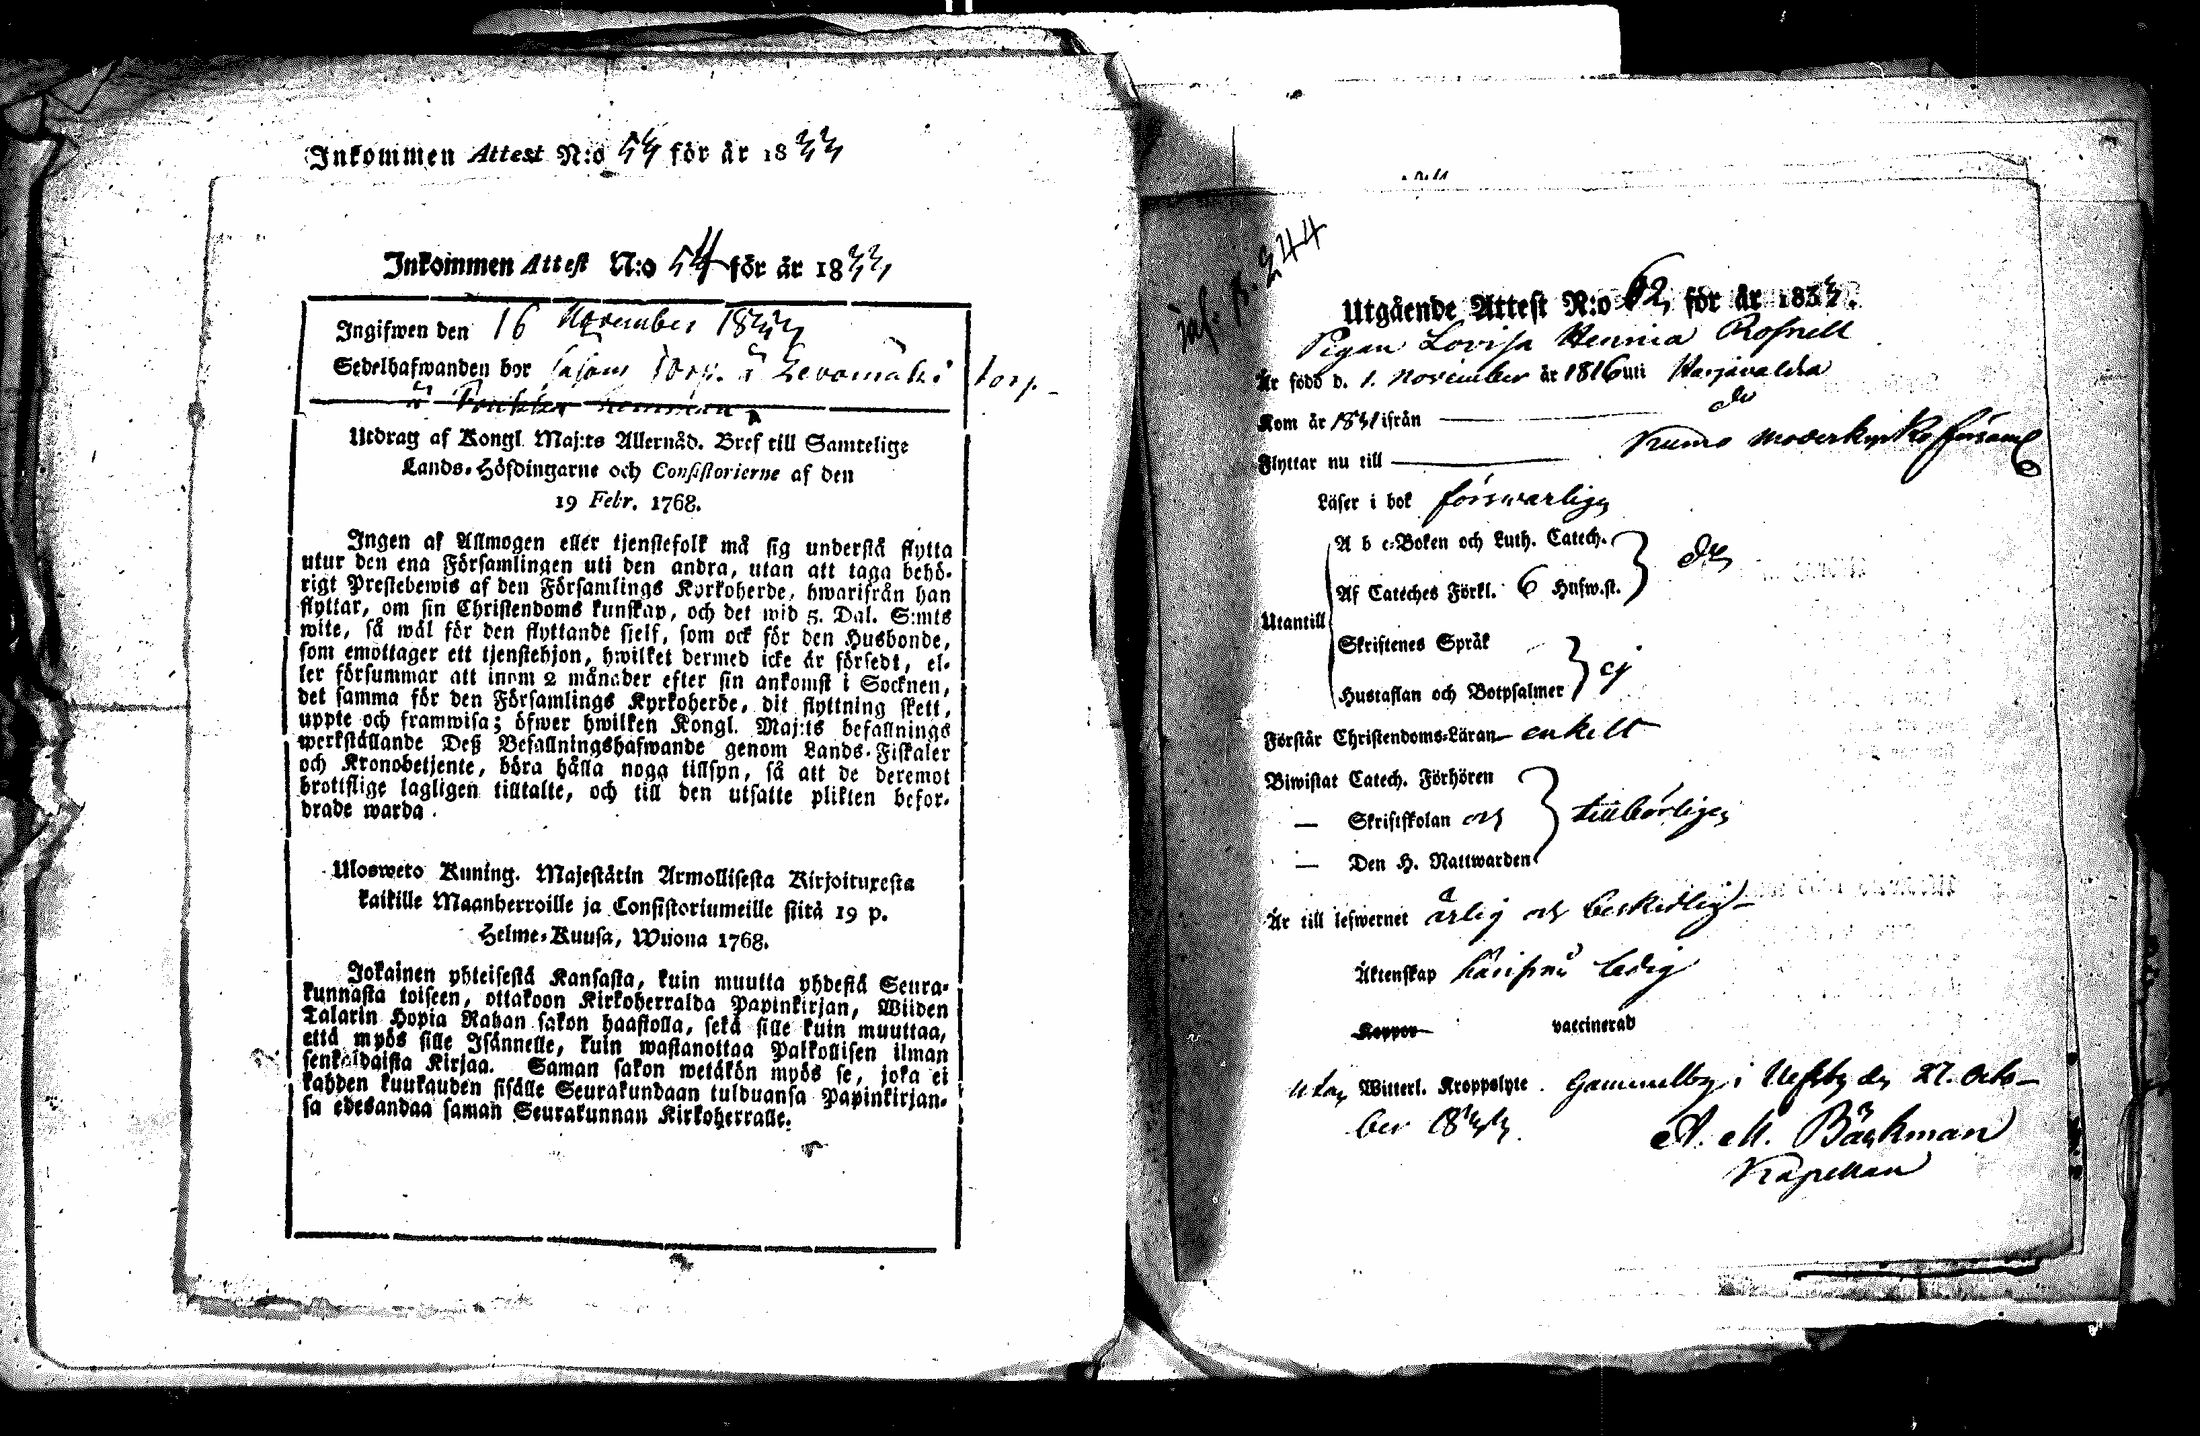 Inkommen Attest N:o 54 för år 1833
Inkommen Attest N:o 54 för år 1833
Ingifwen den 16 November 1833
Sedelhafwanden bor torp
Utdrag af Kongl. Maj:ts Allernåd. Bref till Samtelige
Lands-Höfdingarne och Consistorierne af den
19 Febr. 1768.
Ingen af Allmogen eller tjenstefolk må sig understå flytta
utur den ena Församlingen uti den andra, utan att taga behö-
rigt Prestebewis af den Församlings Kyrkoherde, hwarifrån han
flyttar, om sin Christendoms kunskap, och det wid 5. Dal. S:mts
wite, så wäl för den flyttande sielf, som ock för den Husbonde,
som emottager ett tjenstehjon, hwilket dermed icke är försedt, el-
ler försummar att inom 2 månader efter sin ankomst i Socknen,
det samma för den Församlings Kyrkoherde, dit flyttning skett,
uppte och framwisa; öfwer hwilken Kongl. Maj:ts befallnings
werkställande Deß Befallningshafwande genom Lands-Fiskaler
och Kronobetjente, böra hålla noga tillsyn, så att de deremot
brottslige lagligen tilltalte, och till den utsatte plikten befor-
drade warda.
Ulosweto Kuning. Majestätin Armollisesta Kirjoituxesta
kaikille Maanherroille ja Consistoriumeille siitä 19 p.
Helme-Kuusa, Wuona 1768.
Jokainen yhteisestä Kansasta, kuin muutta yhdestä Seura-
kunnasta toiseen, ottakoon Kirkoherralda Papinkirjan, Wiiden
Talarin Hopia Rahan sakon haastolla, sekä sille kuin muuttaa,
että myös sille Isännelle, kuin wastanottaa Palkollisen ilman
senkaldaista Kirjaa. Saman sakon wetäkön myös se, joka ei
kahden kuukauden sisälle Seurakundaan tulduansa Papinkirjan-
sa edesandaa saman Seurakunnan Kirkoherralle.
244
Utgående Attest N:o 62 för år 1833.
Pigan Lovisa Hennia Rosnell
Är född d. 1. November år 1816 uti Harjavalda
Kom år 1831 ifrån do
Flyttar nu till Kumo moderkyrko församl
Läser i bok förswarligen
A b c-Boken och Luth. Catech.
Af Cateches Förkl. 6 Hufw.st. do
Utantill
Skriftenes Språk
Hustaflan och Botpsalmer ej
Förstår Christendoms-Läran enkelt
Biwistat Catech. Förhören
— Skriftskolan och tillbörligen
— Den H. Nattwarden
Är till lefwernet ärlig och beskedlig
Äktenskap härifrån ledig
Koppor vaccinerad
utan Witterl. Kroppslyte. Gammelby i Ulfsby den 27. Octo-
ber 1833.
A. M. Bäckman
Kapellan